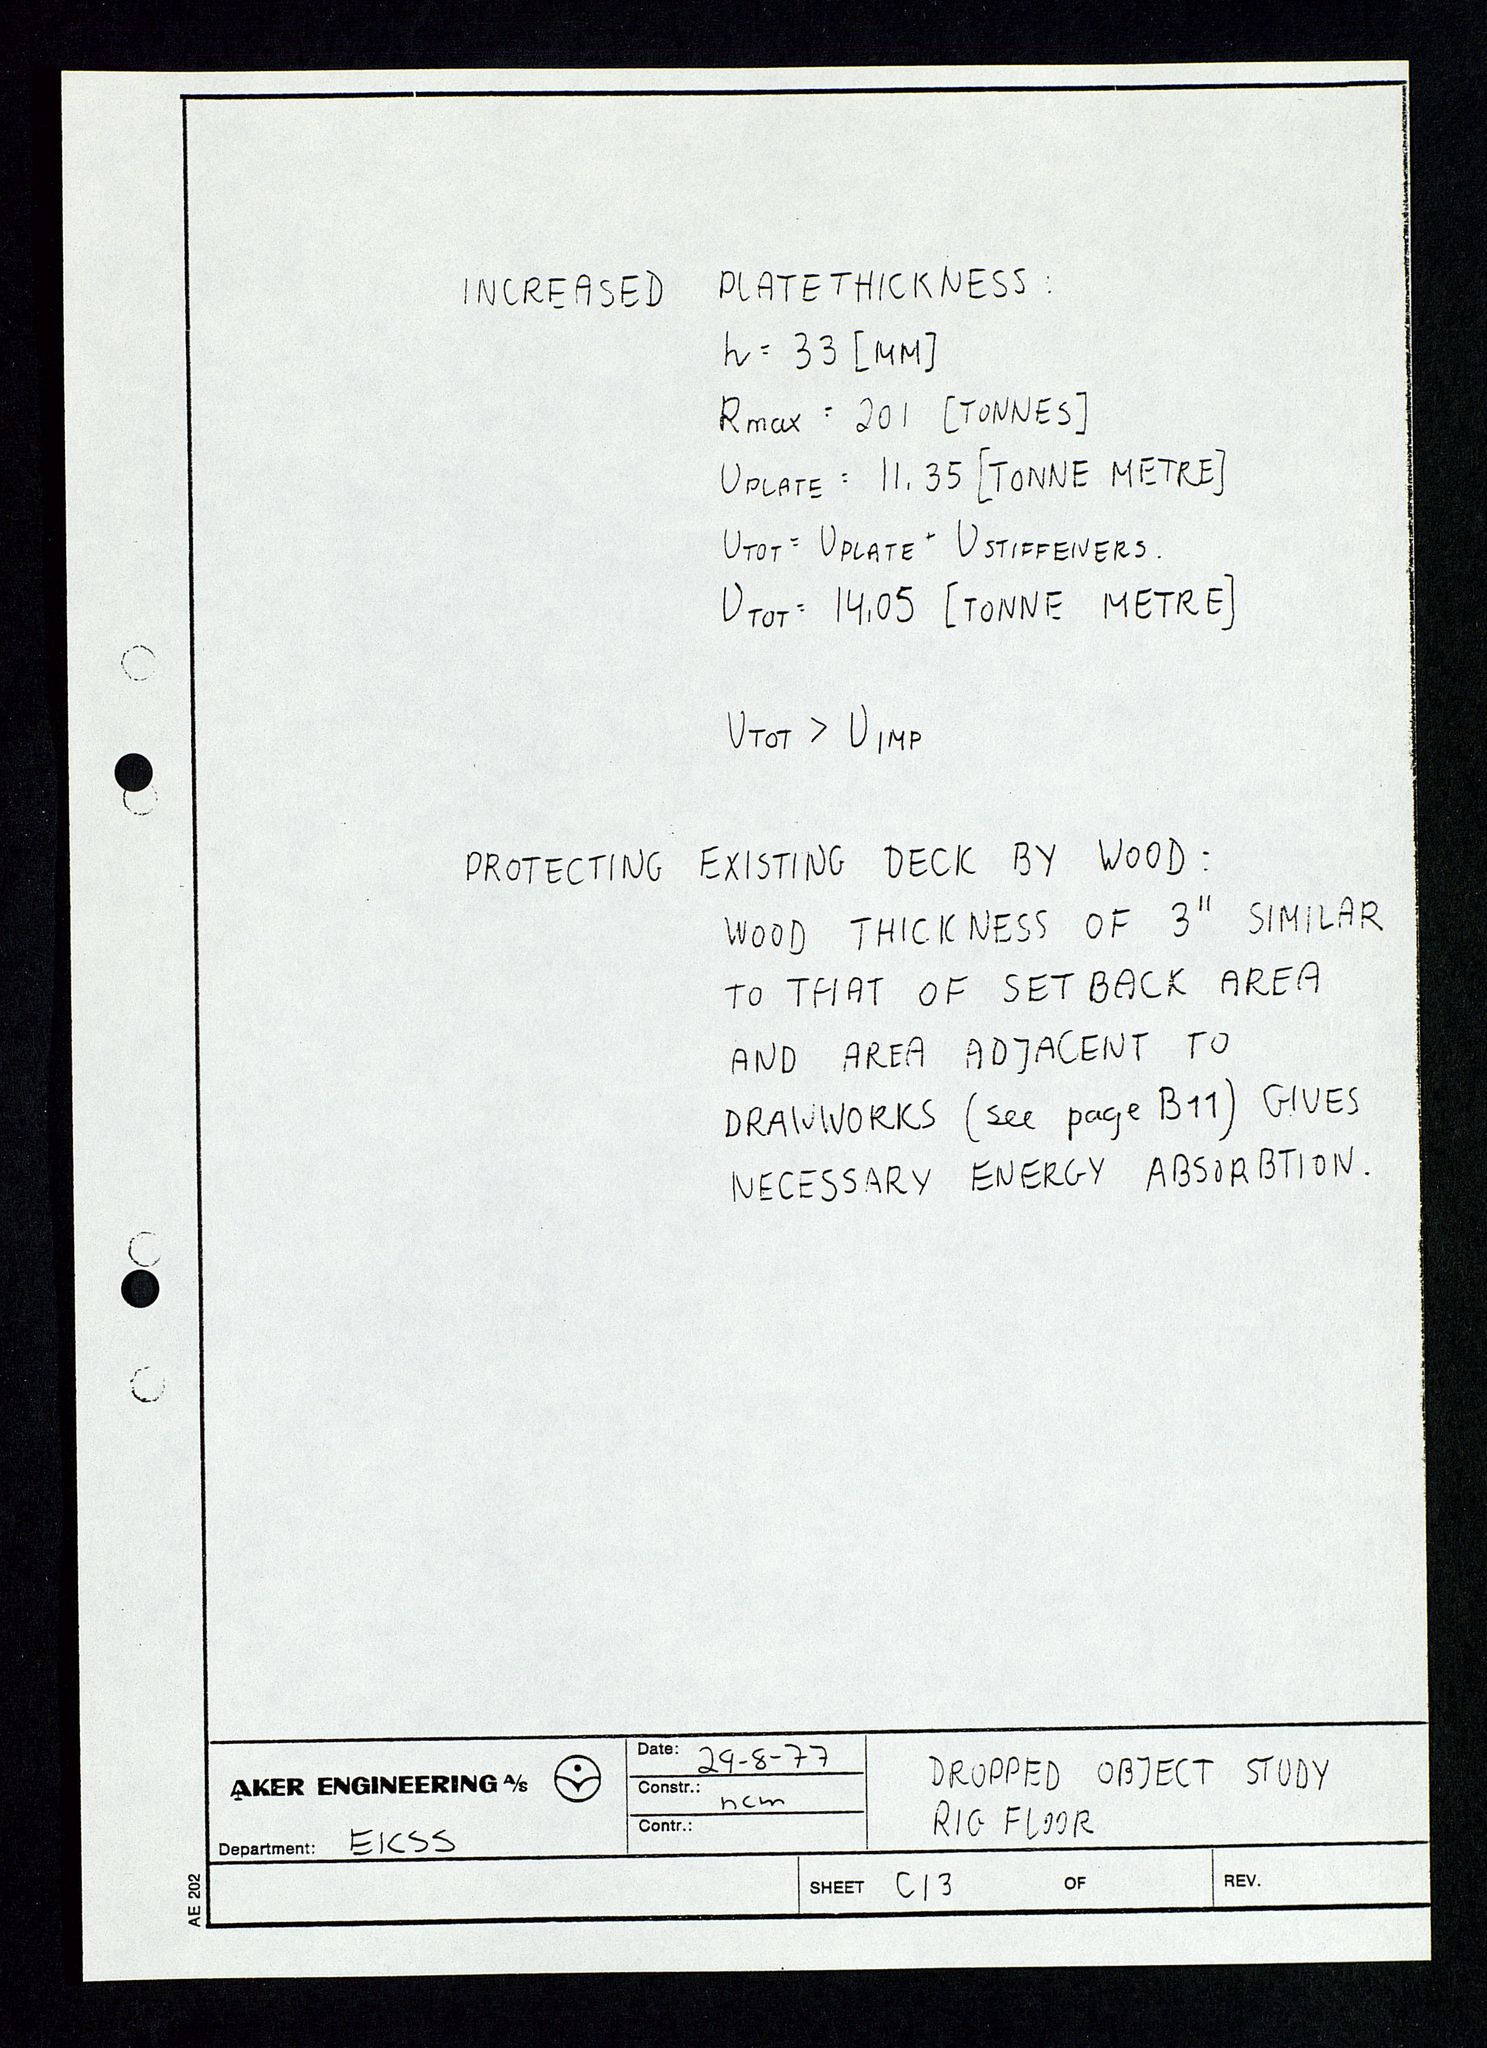 INCREASED PLATETHICKNESS:
h = 33 [MM]
Rmax = 201 [TONNES]
UPLATE = 11.35 [TONNE METRE]
UTOT = UPLATE + USTIFFENERS.
UTOT = 14.05 [TONNE METRE]
UTOT > UIMP
PROTECTING EXISTING DECK BY WOOD:
WOOD THICKNESS OF 3" SIMILAR
TO THAT OF SETBACK AREA
AND AREA ADJACENT TO
DRAWWORKS (see page B11) GIVES
NECESSARY ENERGY ABSORBTION.
AKER ENGINEERING A/S
Department: EKSS
Date: 29-8-77
Constr.: ncm
Contr.:
DROPPED OBJECT STUDY
RIG FLOOR
SHEET C13 OF
REV.
AE 202